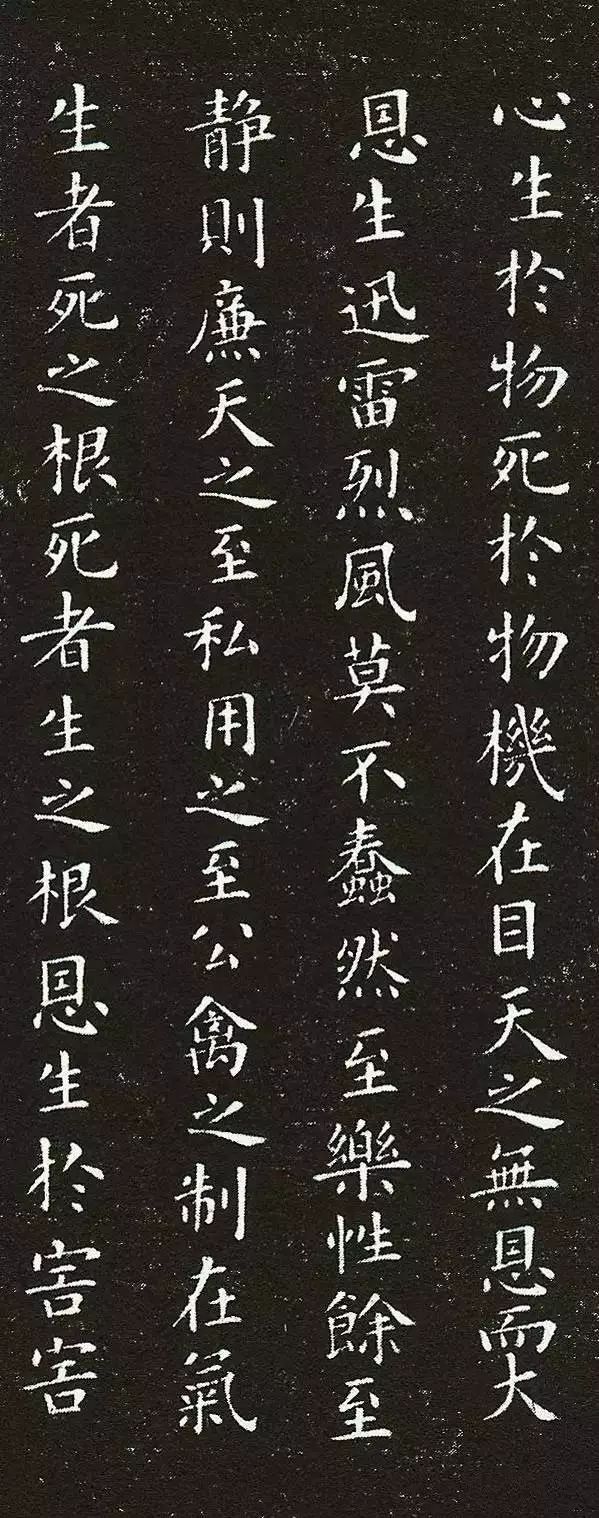 心生於物死於物機在目天之無恩而大
恩生迅雷烈風莫不蠢然至樂性餘至
靜則廉天之至私用之至公禽之制在氣
生者死之根死者生之根恩生於害害